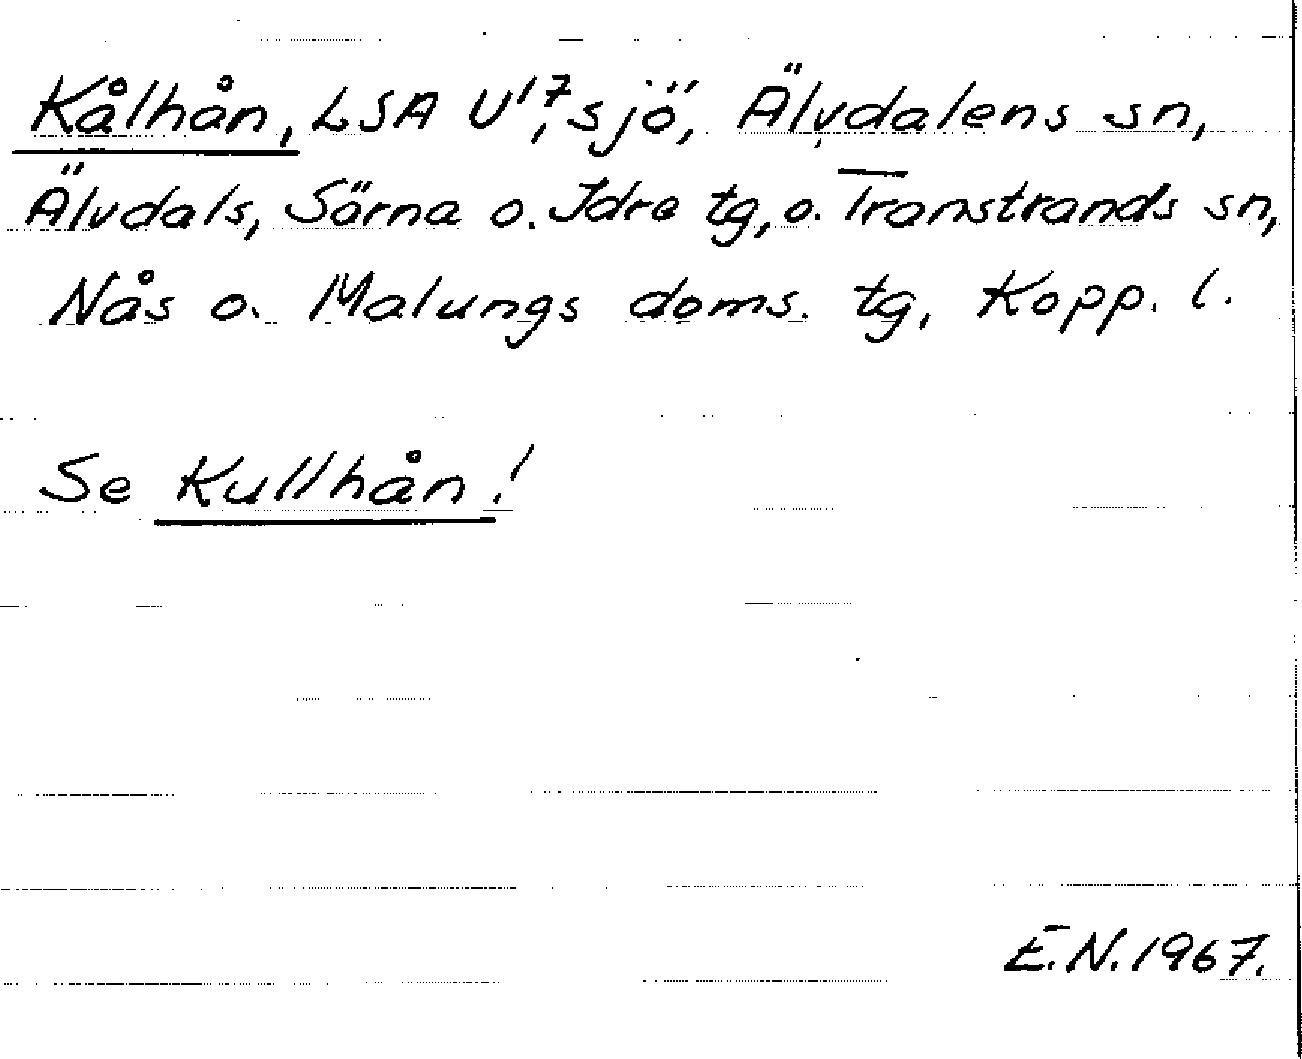 Kålhån, LSA U¹⁷, sjö, Älvdalens sn,
Älvdals, Särna o. Idre tg, o. Transtrands sn,
Nås o. Malungs doms. tg, Kopp. l.
Se Kullhån!
E.N. 1967.